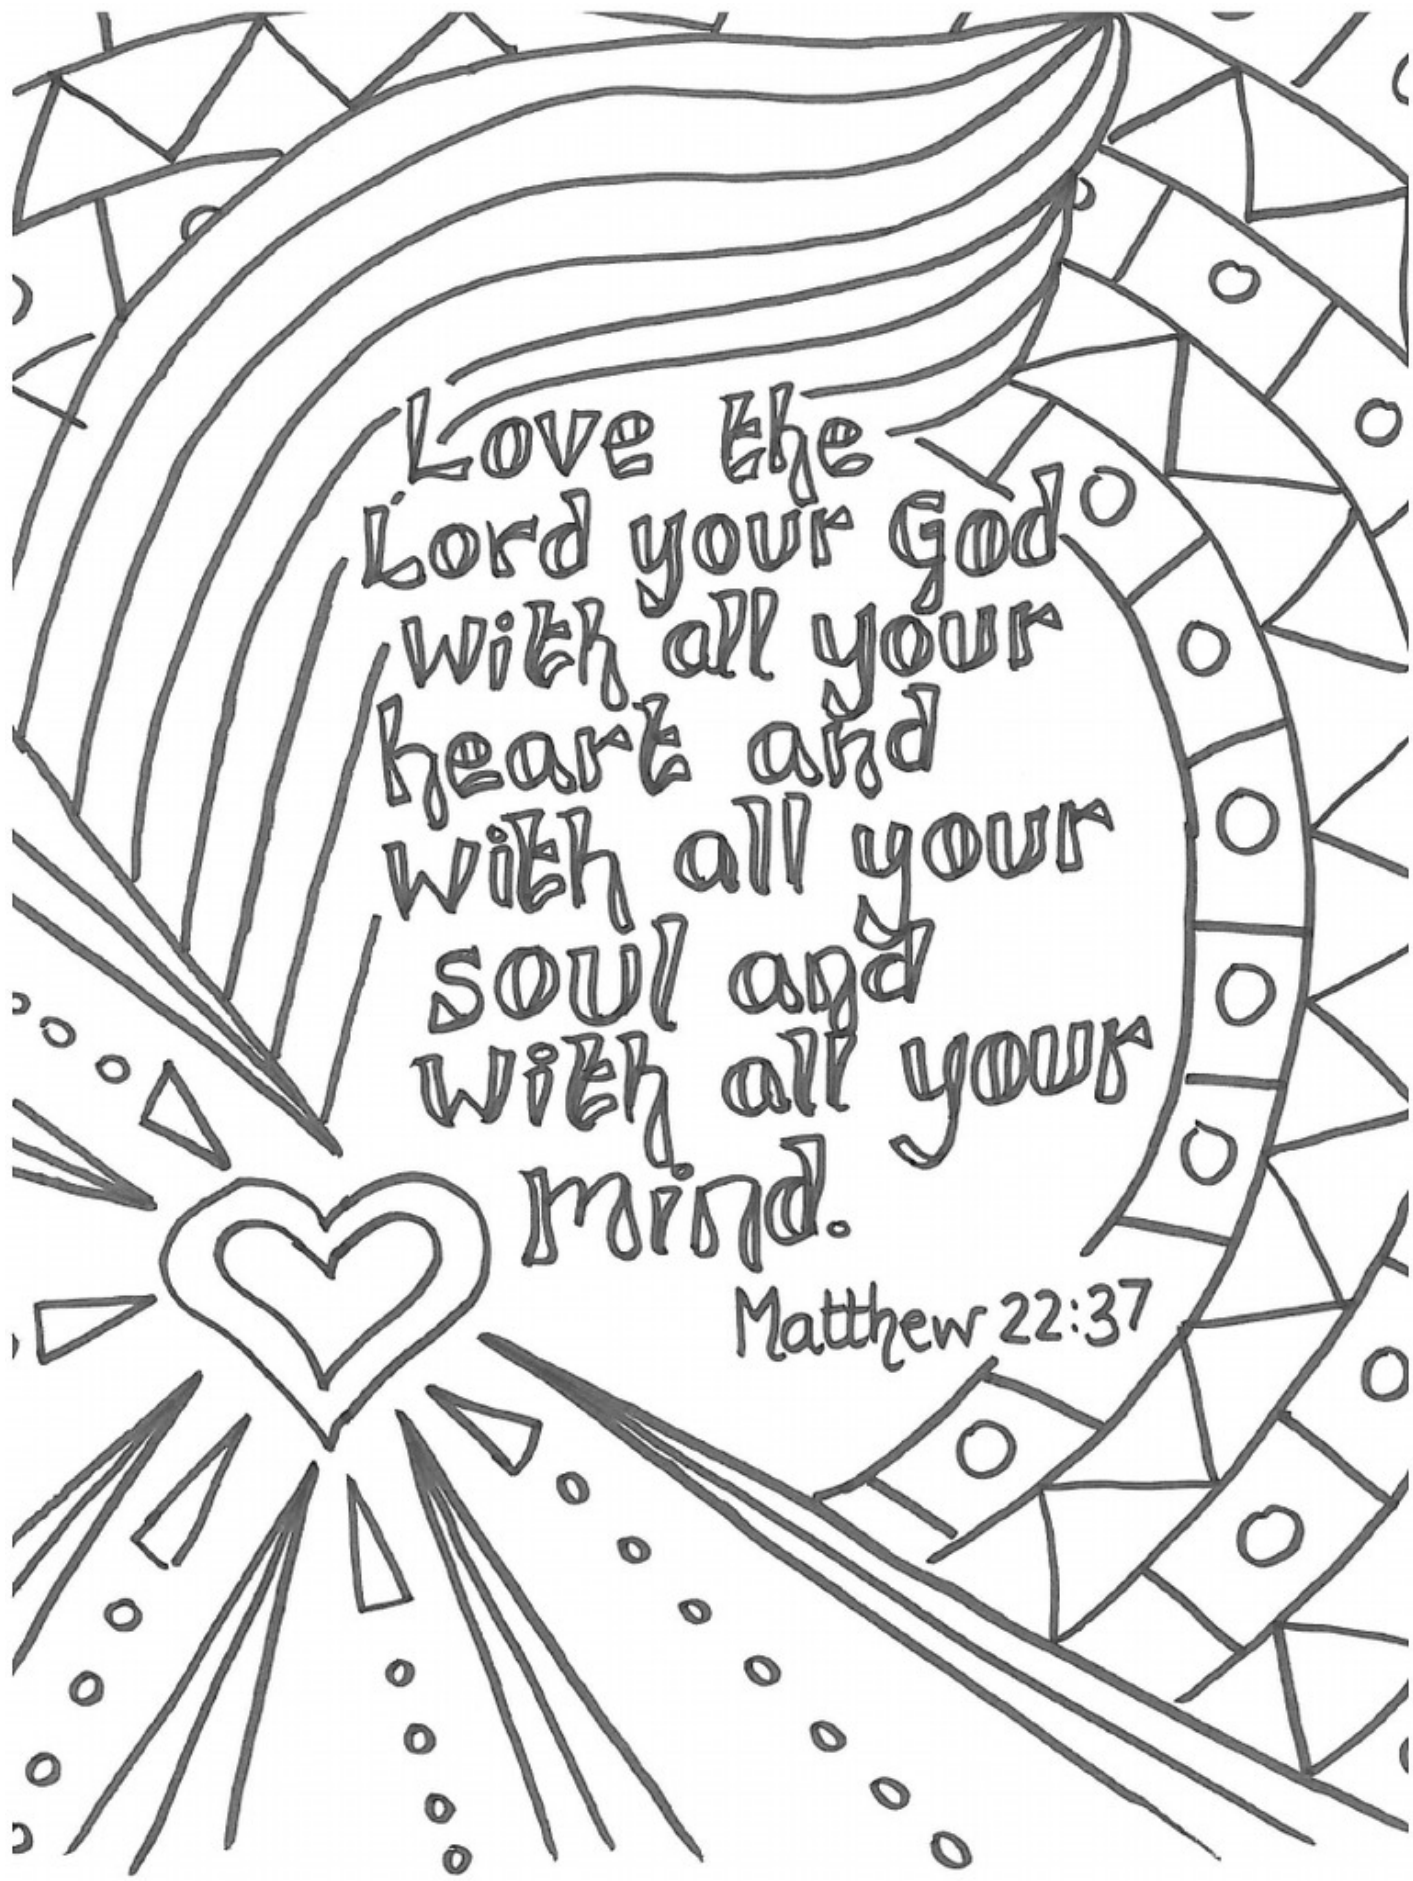 Love the
Lord your God
with all your
heart and
with all your
soul and
with all your
mind.
Matthew 22:37